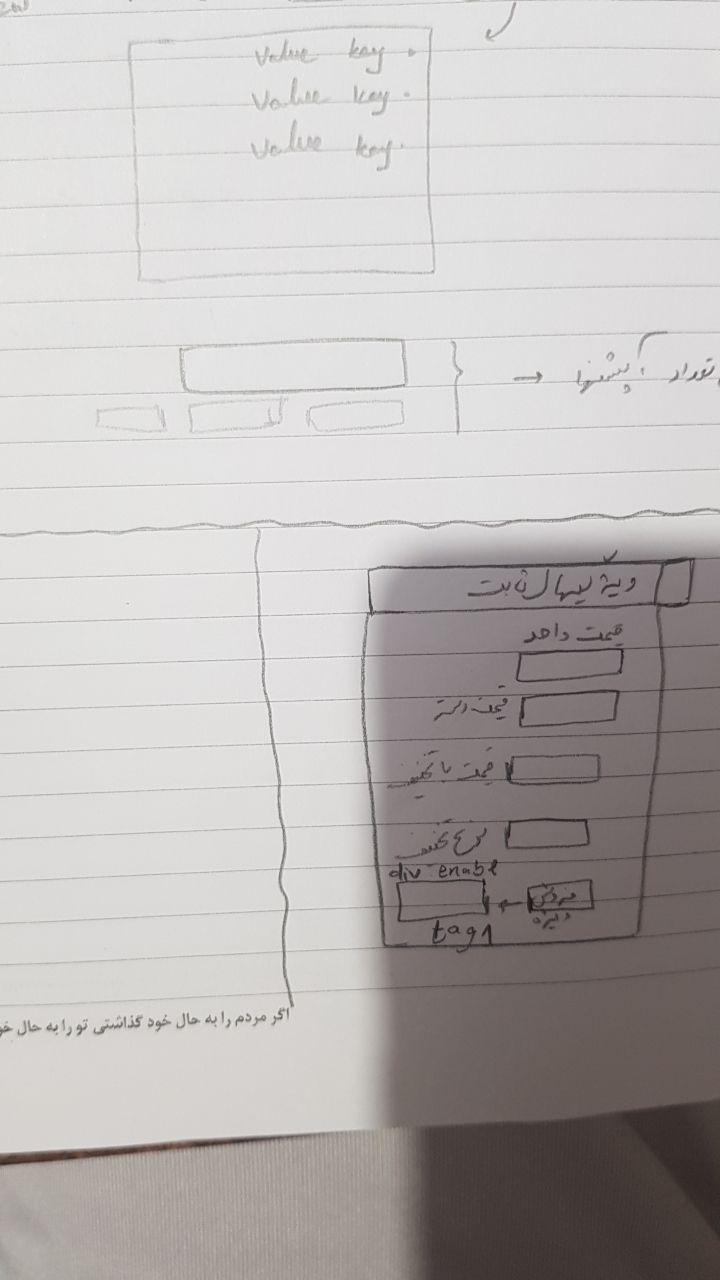 value key.
value key.
value key.
تعداد آپشنها →
ویژگیهای ثابت
قیمت واحد
قیمت با تخفیف
نرخ تخفیف
div enabl
فروش ویژه
tag1
اگر مردم را به حال خود گذاشتی تو را به حال